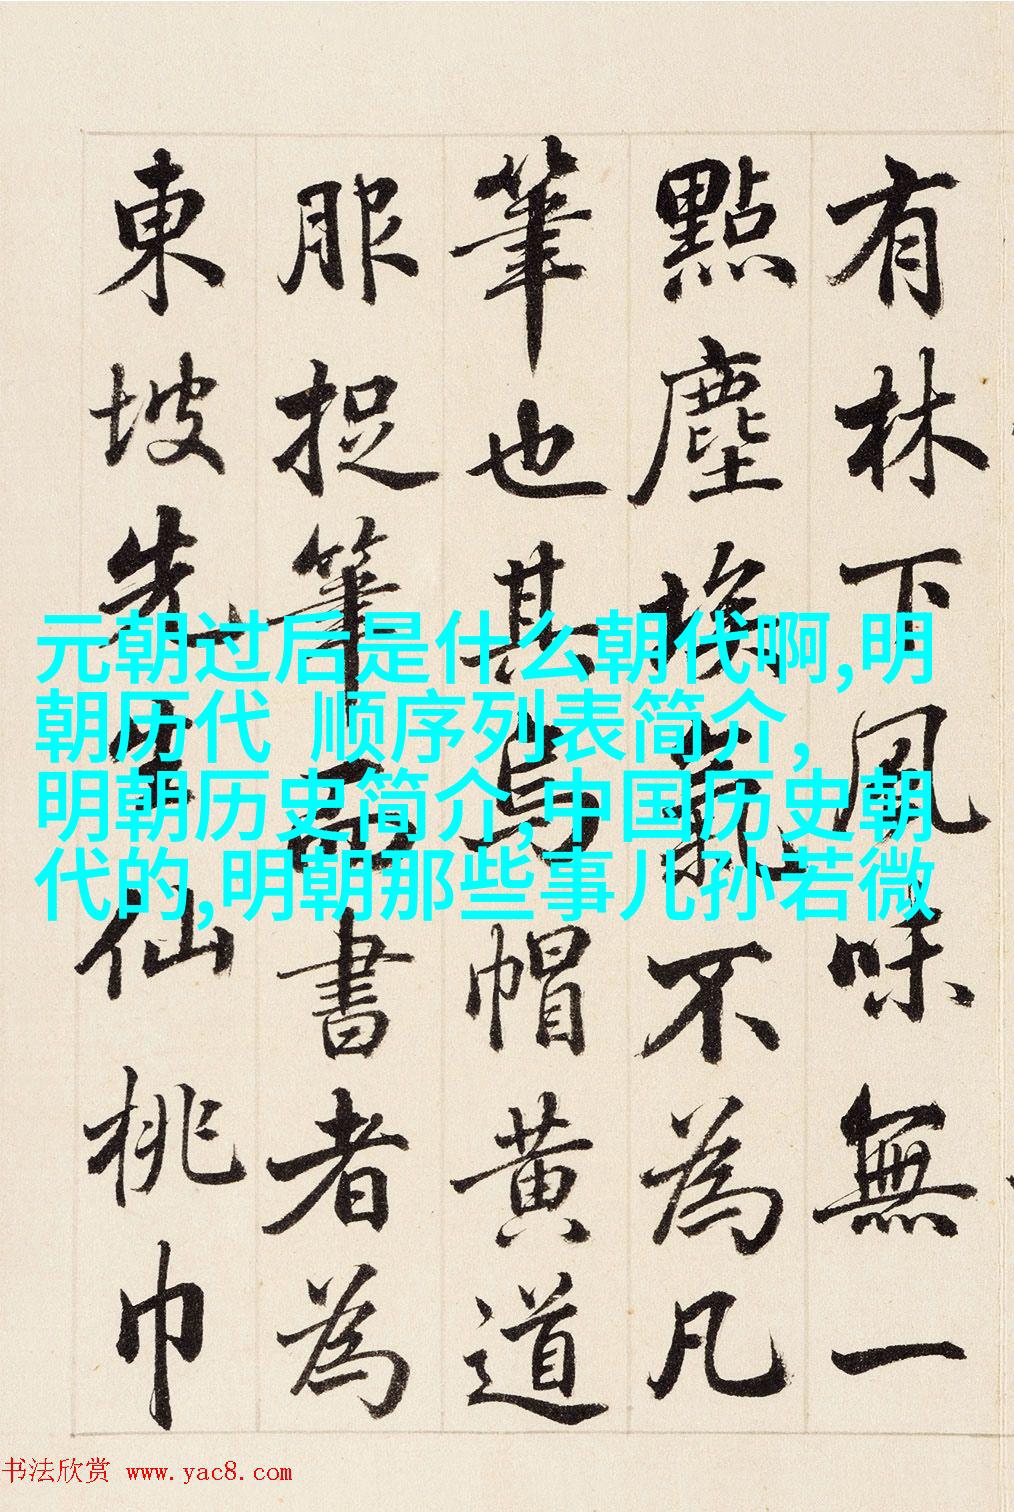 有林下風味無一
點塵埃氣不為凡
筆也其烏帽黄道
服捉筆而書者為
東坡先生仙桃巾
元朝过后是什么朝代啊,明
朝历代 顺序列表简介,
明朝历史简介,中国历史朝
代的,明朝那些事儿孙若微
书法欣赏 www.yac8.com